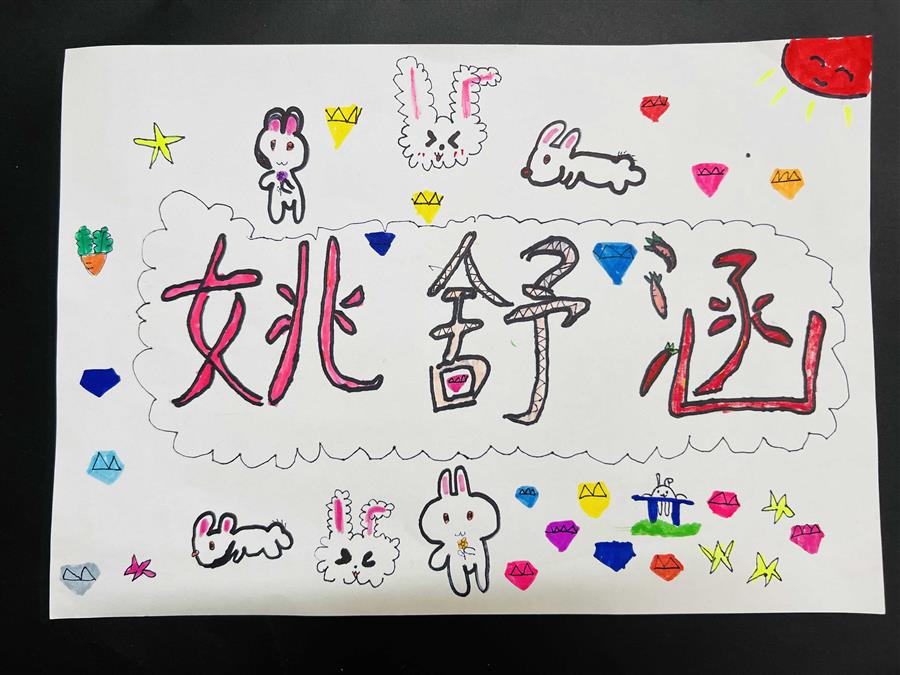 姚舒涵